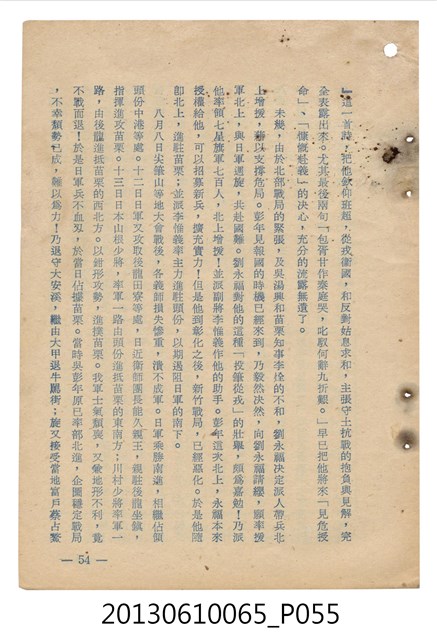 『這一首詩！把他欽仰班超，從戎衛國，和反對姑息求和，主張守土抗戰的抱負與見解，完
全表露出來。尤其最後兩句「包胥甘作秦庭哭，叱馭何辭九折艱。」早已把他將來「見危授
命」、「慷慨赴義」的決心，充分的流露無遺了。
未幾，由於北部戰局的緊張，及吳湯興和苗栗知事李烇的不和，劉永福決定派人帶兵北
上增援，藉以支撐危局。彭年見報國的時機已經來到，乃毅然決然，向劉永福請纓，願率援
軍北上，與日軍週旋，共赴國難。劉永福對他的這種「投筆從戎」的壯舉，頗爲嘉勉！乃派
他率領七星旗軍七百人，北上增援！並派副將李惟義作他的助手。彭年這次北上，永福本來
授權給他，可以招募新兵，擴充實力！但是他到彰化之後，新竹戰局，已經惡化。於是他隨
即北上，進駐苗栗；並派李惟義率主力進駐頭份，以期遏阻日軍的南下。
八月八日尖筆山等地大會戰後，各義師損失慘重，潰不成軍。日軍乘勝南進，相繼佔領
頭份中港等處。十二日日軍又攻取後龍田寮等處，日近衛師團長能久親王，親駐後龍坐鎮，
指揮進攻苗栗。十三日日本山根少將，率軍一路由頭份進抵苗栗的東南方；川村少將率軍一
路，由後龍進抵苗栗的西北方。以鉗形攻勢，進撲苗栗。我軍士氣頹喪，又兼地形不利，竟
不戰而退！於是日軍兵不血刃，於當日佔據苗栗。當時吳彭年原已率部北進，企圖穩定戰局
，不幸頹勢已成，難以爲力！乃退守大安溪，繼由大甲退牛罵街；旋又接受當地富戶蔡占鰲
— 54 —
20130610065_P055